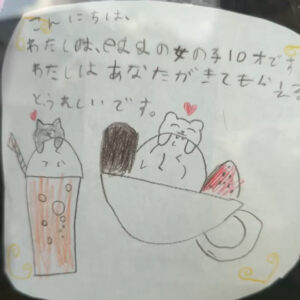 こんにちは、
わたしは、の女の子10才です
わたしは あなたがきてもらえる
とうれしいです。